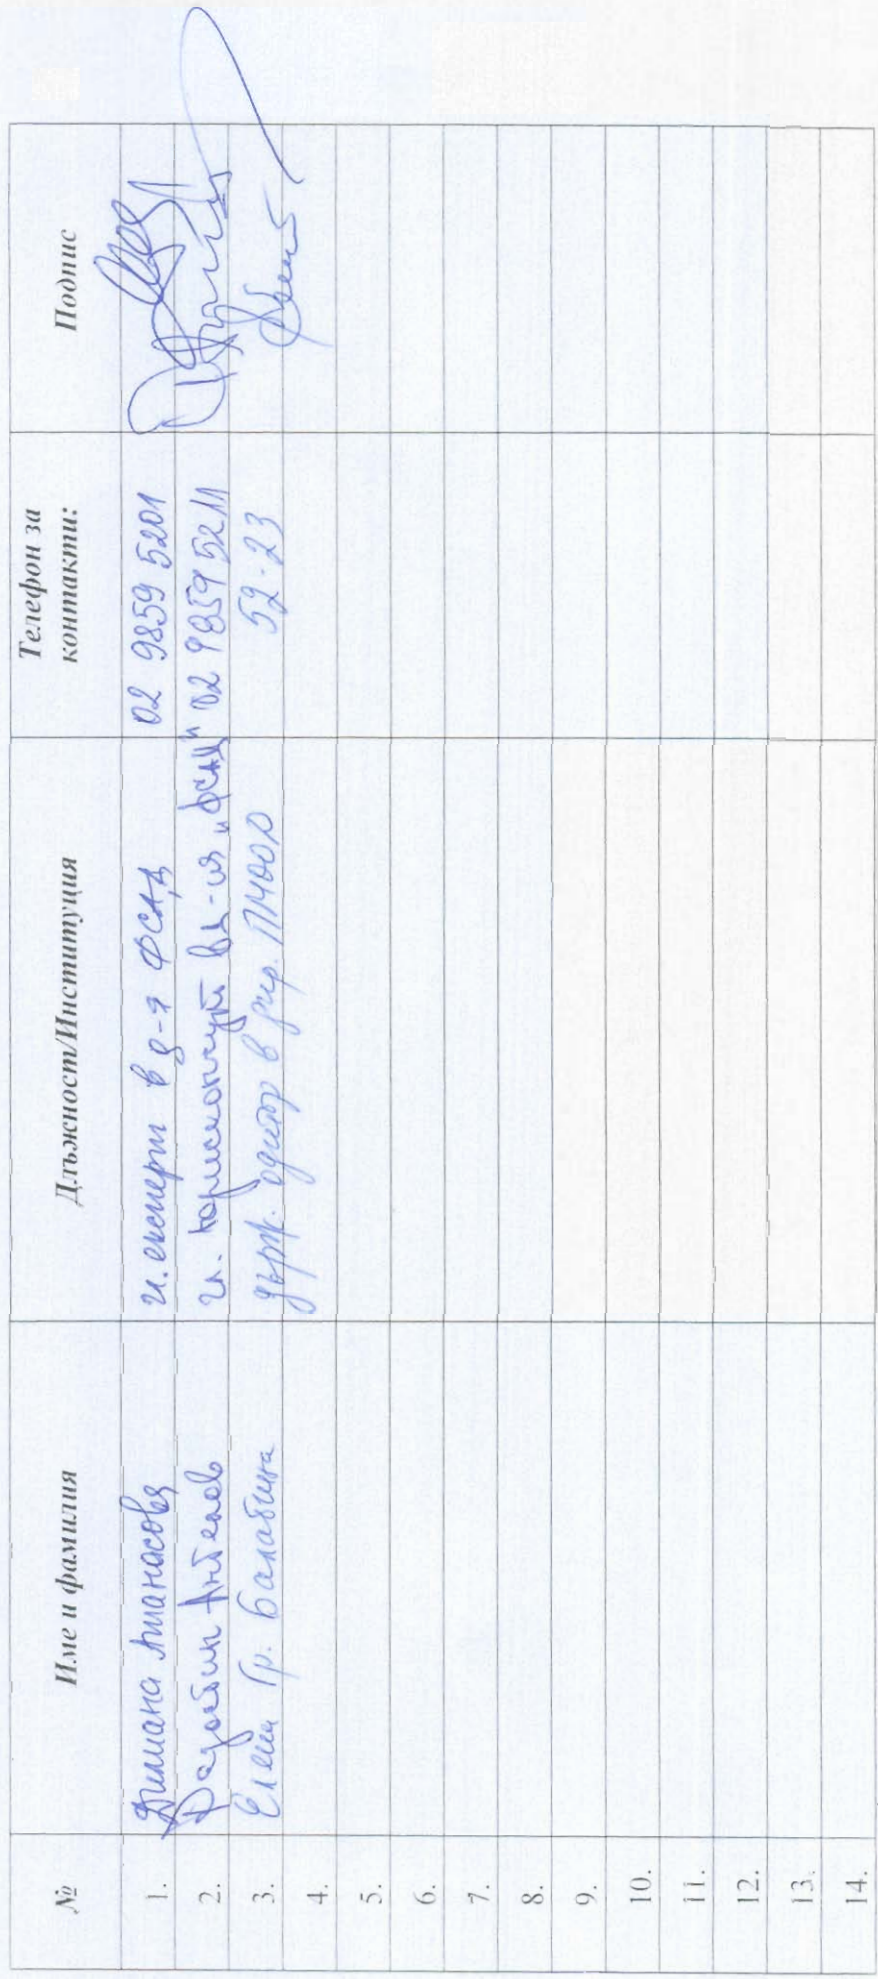 № Име и фамилия Длъжност/Институция Телефон за контакти: Подпис
1. Димана Атанасова гл. експерт в д-я ФСАД 02 9859 5201
2. Ангелов гл. юрисконсулт в д-ия „ФСАД" 02 9859 5211
3. Елена Гр. Балабина държ. одитор в 52-23
4.
5.
6.
7.
8.
9.
10.
11.
12.
13.
14.